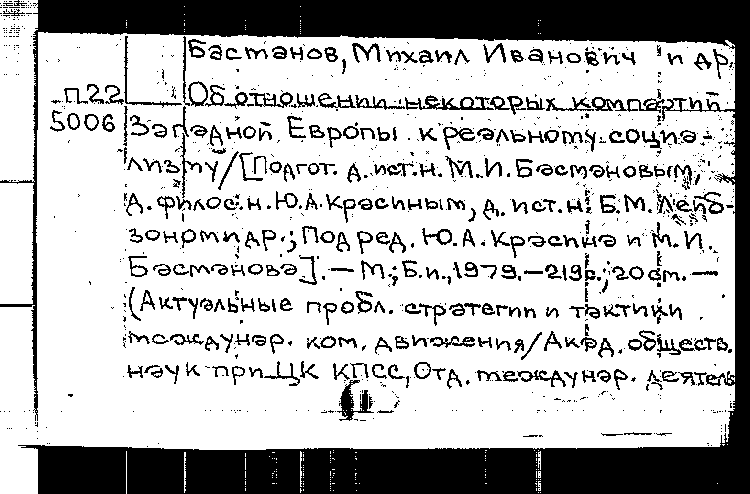 Бастанов, Михаил Иванович и др.
П22 Об отношении некоторых компартий
5006 Западной Европы к реальному социа-
лизму/[Подгот. д. ист. н. М.И. Бастановым,
д. филос. н. Ю.А. Красиным, д. ист. н. Б.М. Лейб-
зоном и др.; Под ред. Ю.А. Красина и М.И.
Бастанова]. — М.; Б.и., 1979. — 219с.; 20 см. —
(Актуальные пробл. стратегии и тактики
междунар. ком. движения/Акад. обществ.
наук при ЦК КПСС, Отд. междунар. деятель